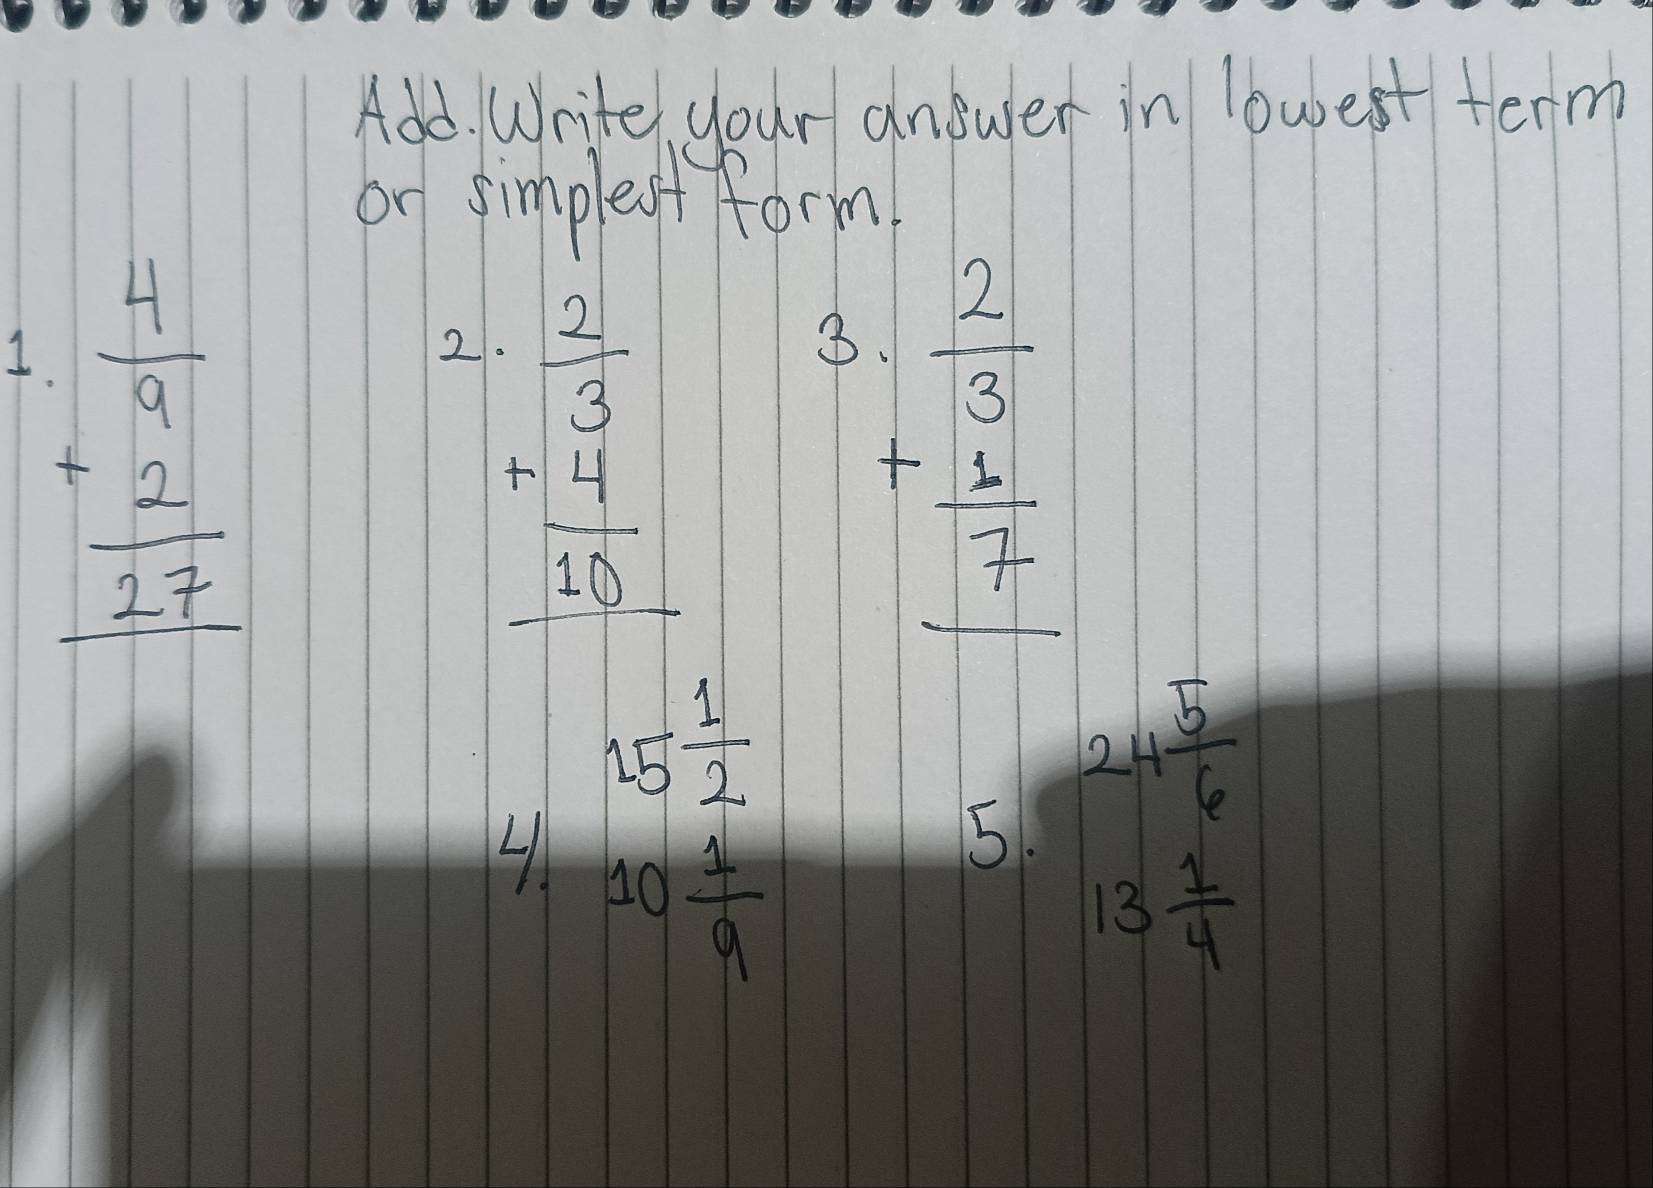 Add. Write your answer in lowest term
or simplest form.
1. 4/9 + 2/27
2. 2/3 + 4/10
3. 2/3 + 1/7
4. 15 1/2 10 1/9
5. 24 5/6 13 1/4